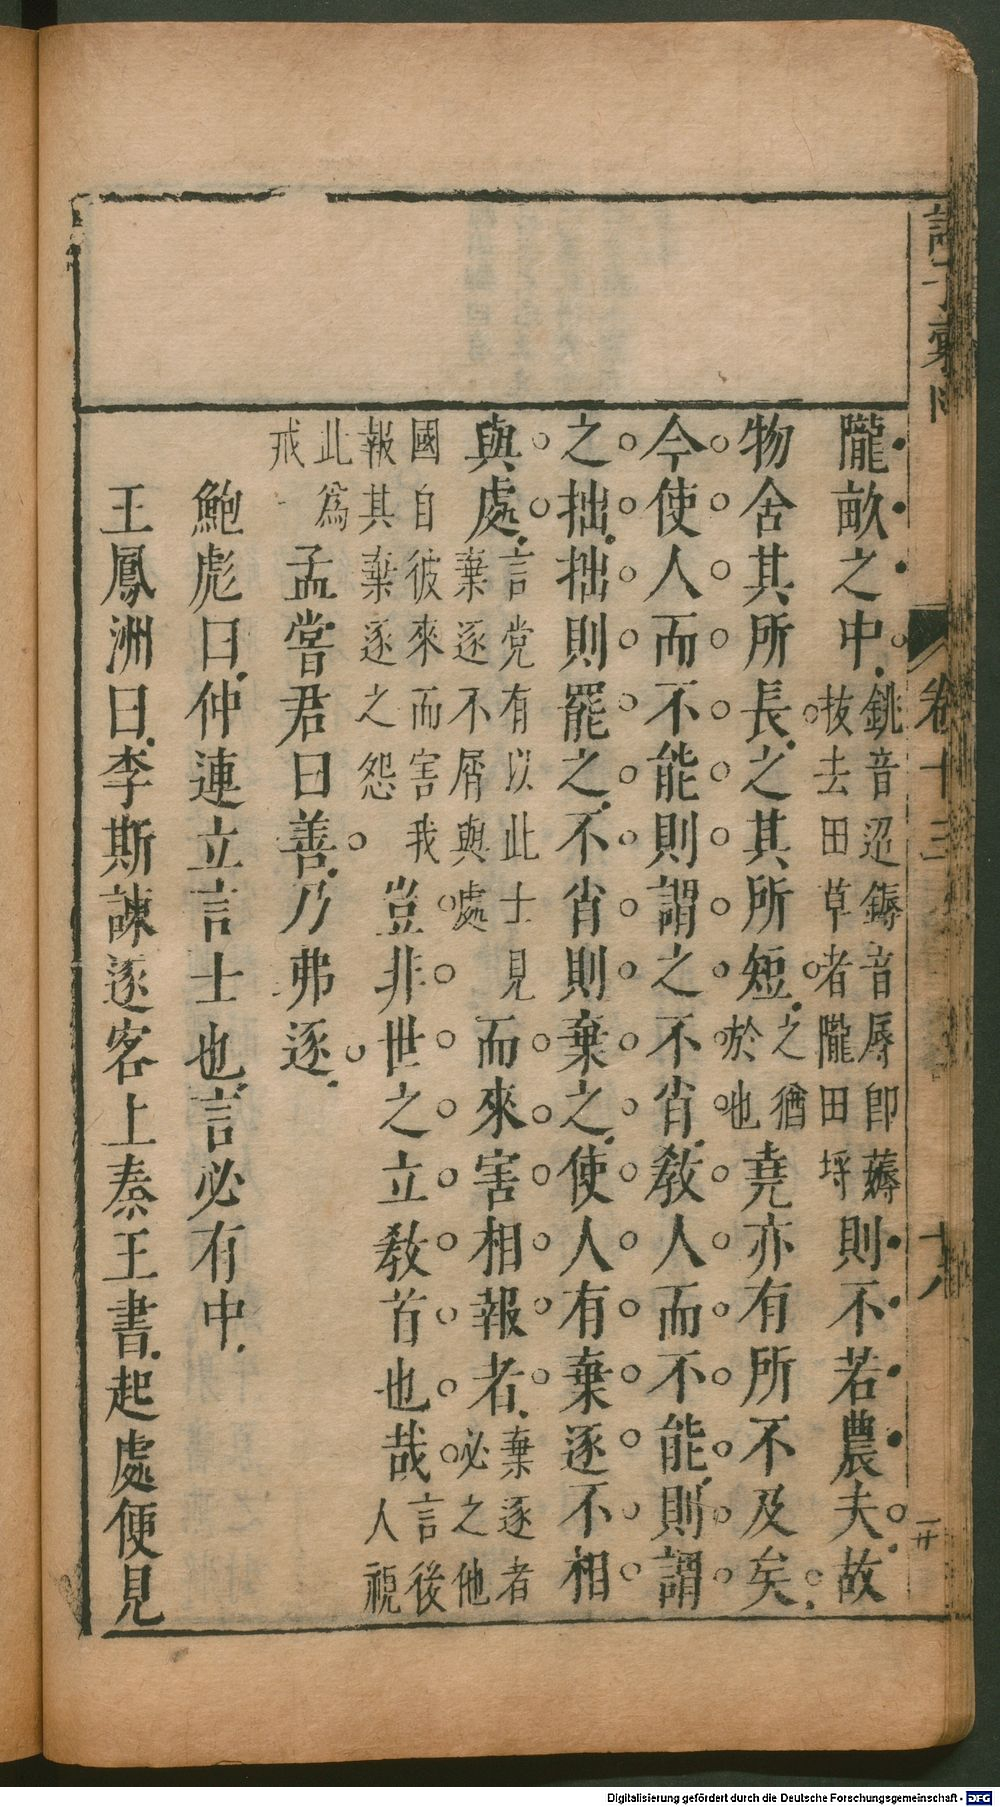 隴畝之中銚音迢鎒音辱卽薅拔去田草者隴田埒則不若農夫故
物舍其所長之其所短之猶於也堯亦有所不及矣
今使人而不能則謂之不肖教人而不能則謂
之拙拙則罷之不肖則棄之使人有棄逐不相
與處言党有以此士見棄逐不屑與處而來害相報者棄逐者必之他
國自彼來而害我報其棄逐之怨豈非世之立教首也哉言後人視
此為戒孟嘗君曰善乃弗逐
鮑彪曰仲連立言士也言必有中
王鳳洲曰李斯諫逐客上秦王書起處便見
卷十三
十八
Digitalisierung gefördert durch die Deutsche Forschungsgemeinschaft - DFG